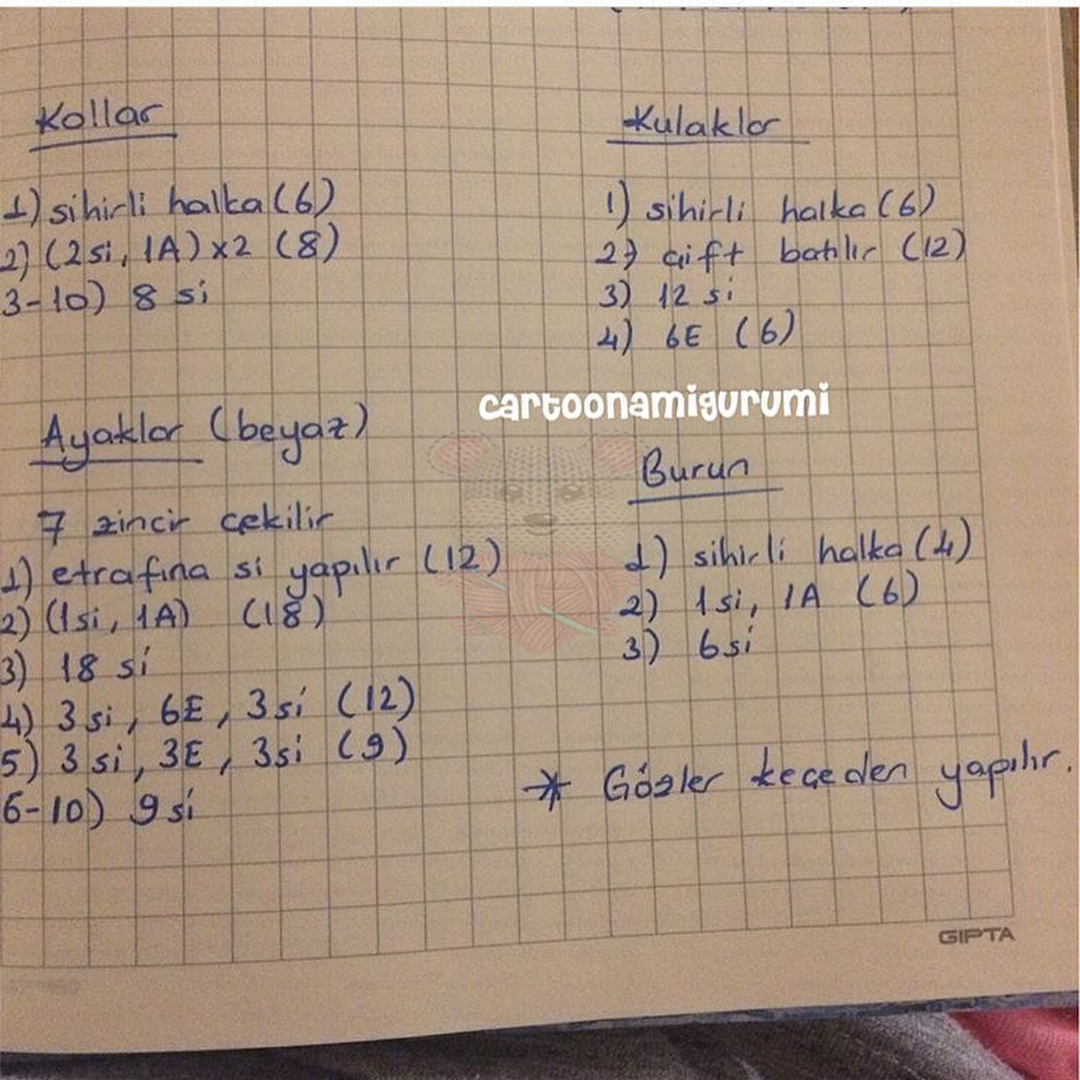 Kollar
1) sihirli halka (6)
2) (2si, 1A) x2 (8)
3-10) 8 si
Kulaklar
1) sihirli halka (6)
2) çift batılır (12)
3) 12 si
4) 6E (6)
cartoonamigurumi
Ayaklar (beyaz)
7 zincir çekilir
1) etrafına si yapılır (12)
2) (1si, 1A) (18)
3) 18 si
4) 3 si, 6E, 3si (12)
5) 3 si, 3E, 3si (9)
6-10) 9 si
Burun
1) sihirli halka (4)
2) 1si, 1A (6)
3) 6si
* Gözler keçeden yapılır.
GIPTA